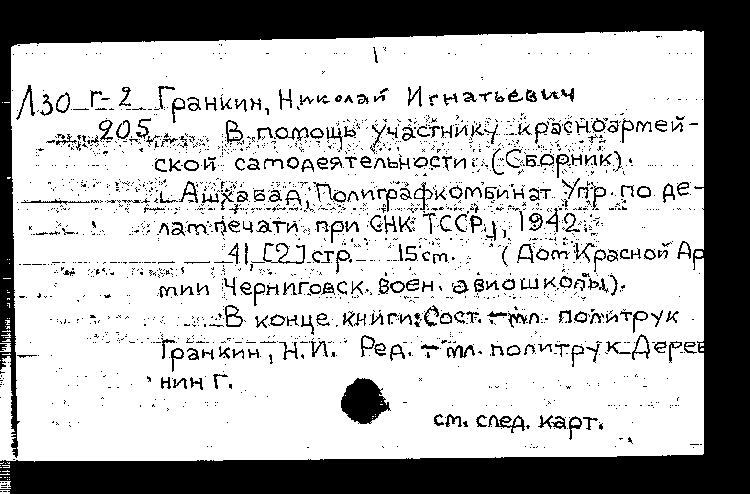 Л30 Г-2 Гранкин, Николай Игнатьевич
905 В помощь участнику красноармей-
ской самодеятельности. (Сборник).
Ашхабад, Полиграфкомбинат Упр. по де-
лам печати при СНК ТССР, 1942.
41, [2] стр. 15 см. (Дом Красной Ар
мии Черниговск. воен. авиошколы).
В конце книги: Сост. – мл. политрук
Гранкин, Н.И. Ред. – мл. политрук Дерев
нин Г.
см. след. карт.